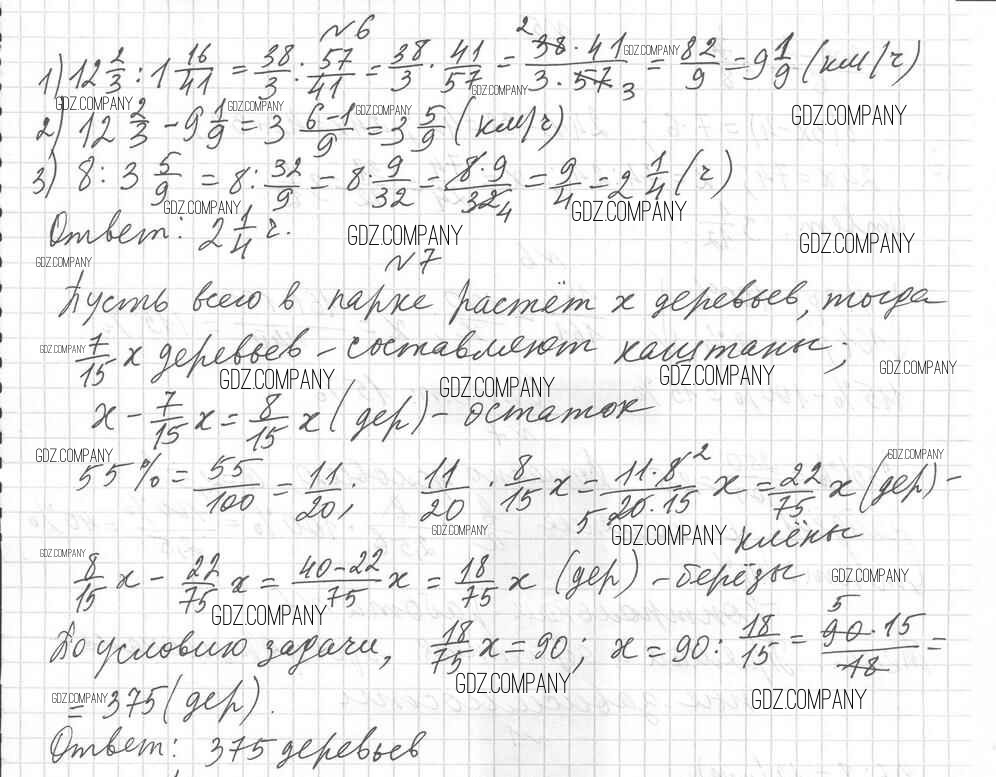 №6
1) 12 2/3 : 1 16/41 = 38/3 : 57/41 = 38/3 · 41/57 = 38 · 41 / 3 · 57 = 82/9 = 9 1/9 (км/ч)
2) 12 2/3 - 9 1/9 = 3 6-1/9 = 3 5/9 (км/ч)
3) 8 : 3 5/9 = 8 : 32/9 = 8 · 9/32 = 8·9/32 4 = 9/4 = 2 1/4 (ч)
Ответ: 2 1/4 ч.
№7
Пусть всего в парке растёт x деревьев, тогда
7/15 x деревьев - составляют каштаны;
x - 7/15 x = 8/15 x (дер) - остаток
55% = 55/100 = 11/20; 11/20 · 8/15 x = 11·8 2/5 20·15 x = 22/75 x (дер) -
клёны
8/15 x - 22/75 x = 40-22/75 x = 18/75 x (дер) - берёзы
По условию задачи, 18/75 x = 90; x = 90 : 18/15 = 5 90·15/18 =
= 375 (дер).
Ответ: 375 деревьев
GDZ.COMPANY